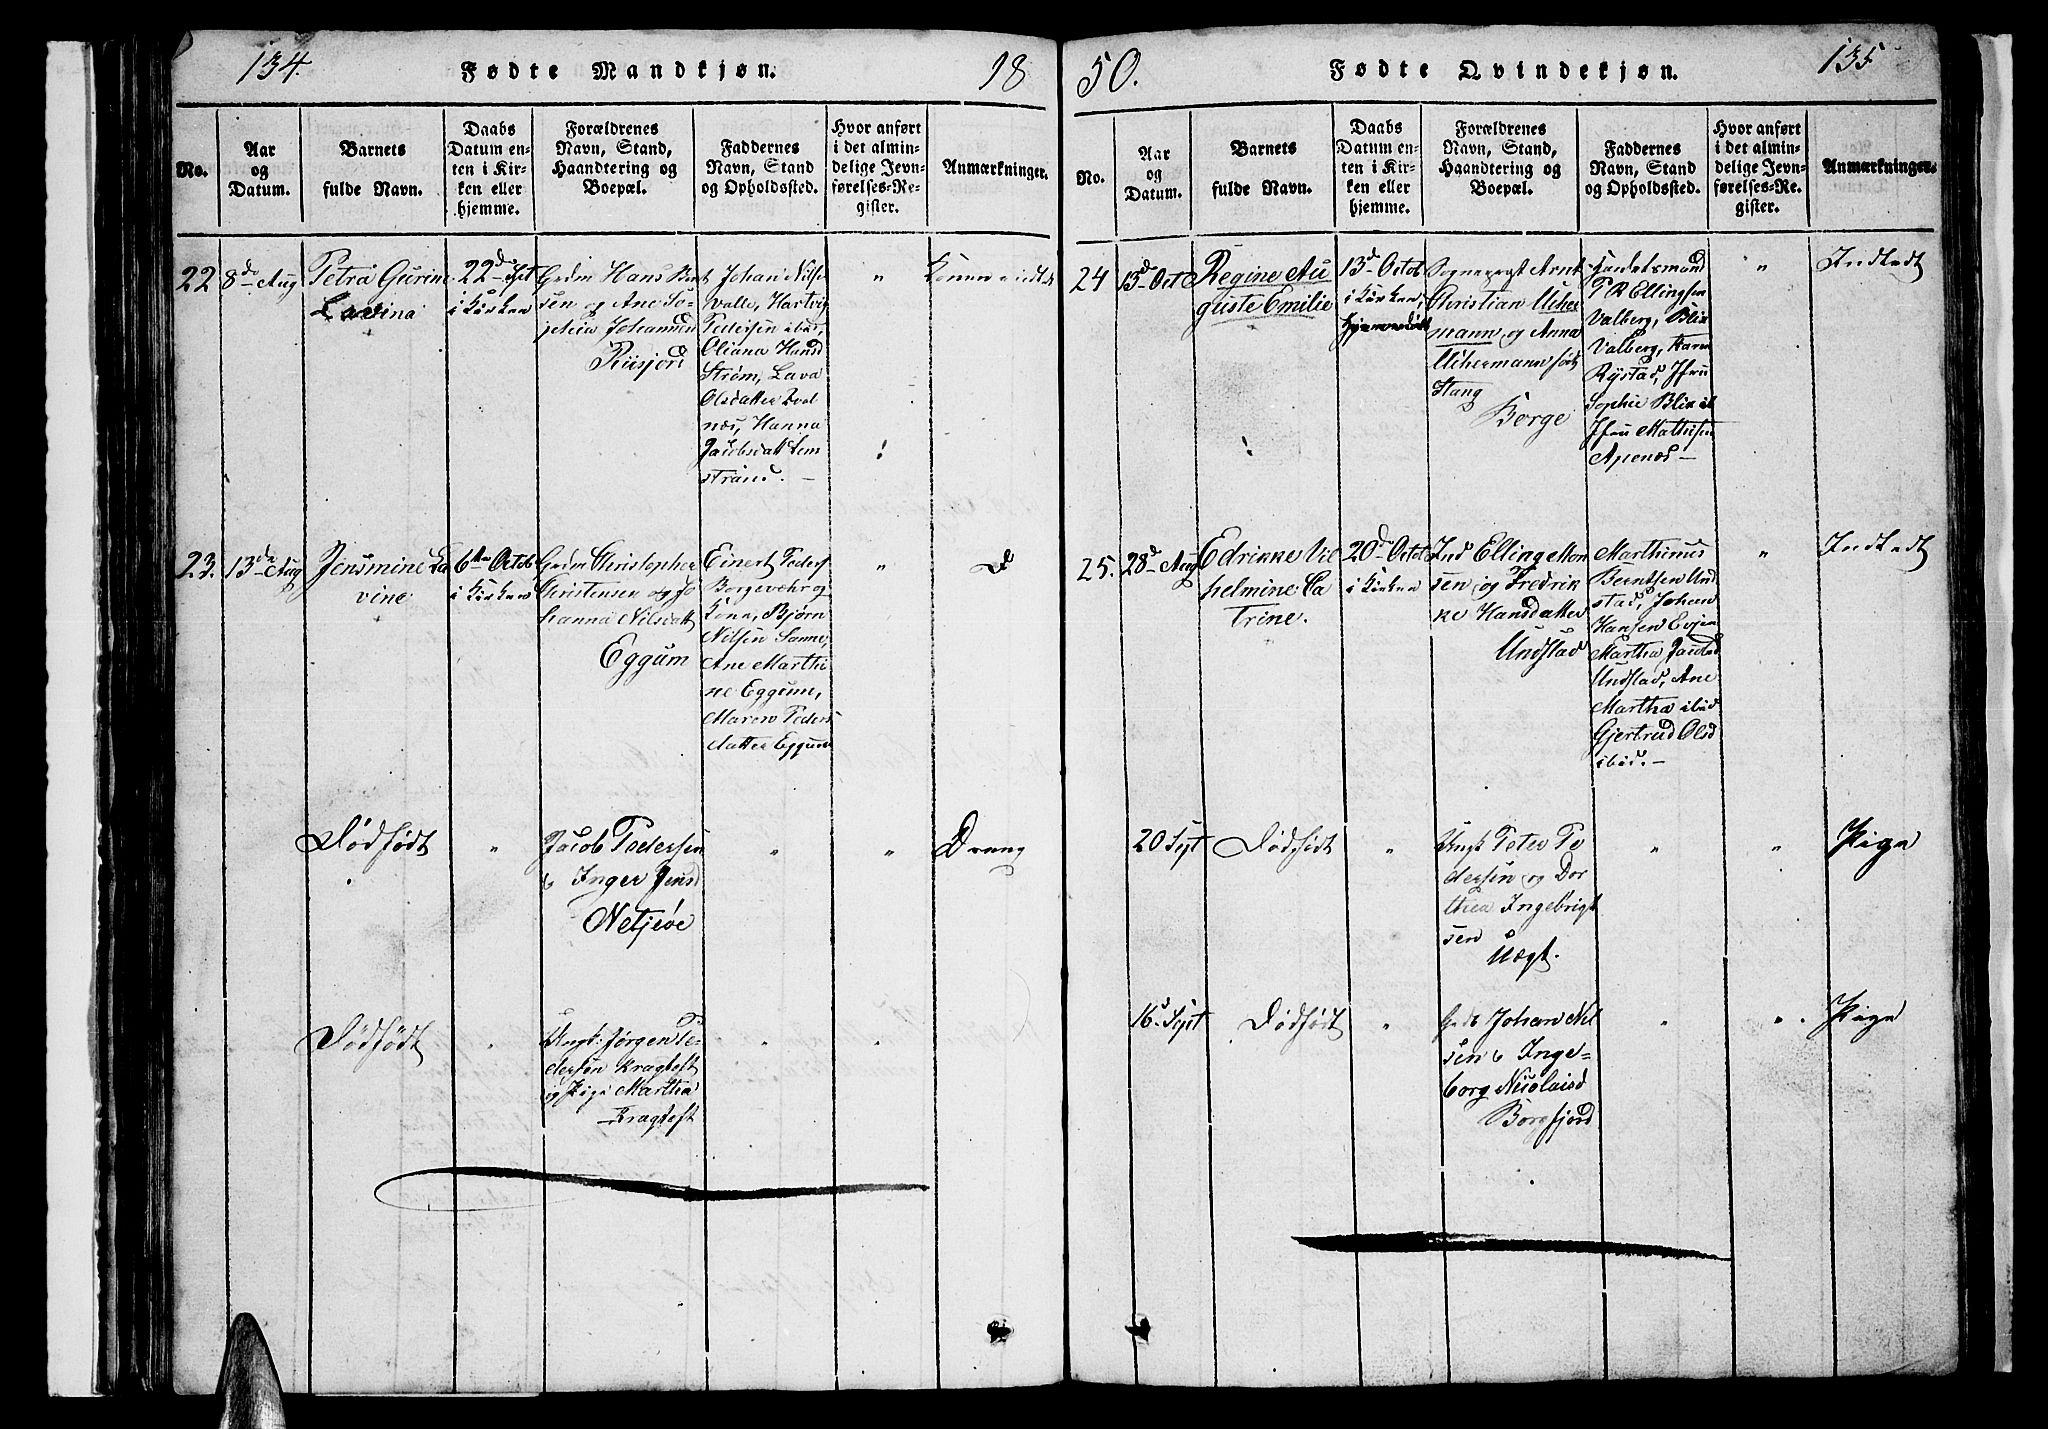 134.
Fødte Mandkjøn.
18
No.
Aar
og
Datum.
Barnets
fulde Navn.
Daabs
Datum en-
ten i Kir-
ken eller
hjemme.
Forældrenes
Navn, Stand,
Haandtering og
Boepæl.
Faddernes
Navn, Stand
og Opholdssted.
Hvor anført
i det almin-
delige Jevn-
førelses-Re-
gister.
Anmærkninger.
22
8de Aug
Petra Gurine
Lavina
22d Spt
i Kirken
Grdm Hans Bent
sen og Ane So-
phia Johannesd
Riisjord
Johan Nils
Valle, Hartvig
Pedersen ibid,
Oliana Hansd
Strøm, Lava
Olsdatter
Hanna
Jacobsdatt Lim
strand. —
"
Konen
23.
13de Aug
Jensmine La
vine
6te Octob
i Kirken
Grdm Christopher
Christensen og Jo
hanna Nilsdatt
Eggum
Einert Peders
Borgevehr og
Kone, Bjørn
Nilsen Sanne,
Ane Marthi
ne Eggum,
Maren Peders
datter Eggum
"
D
Dødfødt
"
Jacob Pedersen
& Inger Jensd
Netjeøe
"
"
Dreng
Dødfødt
"
Ungk: Jørgen Pe-
dersen Kragtoft
og Pige Martha
Kragtoft
"
"
50.
Fødte Qvindekjøn.
135
No.
Aar
og
Datum.
Barnets
fulde Navn.
Daabs
Datum en-
ten i Kir-
ken eller
hjemme.
Forældrenes
Navn, Stand,
Haandtering og
Boepæl.
Faddernes
Navn, Stand
og Opholdssted.
Hvor anført
i det almin-
delige Jevn-
førelses-Re-
gister.
Anmærkninger.
24
13d Oct
Regine Au
guste Emilie
13d Octob
i Kirken,
hjemmedøbt
Sogneprest Arnt
Christian Ucher
mann og Anna
Uchermann født
Stang
Borge
Handelsmand
P R Ellingsen
Valberg, Blix
Valberg, Karen
Rystad, Jfru
Sophie Blix ib
Jfru Mathisen
Apenæs —
"
Indledt
25.
28d Aug
Edrikke Vil
helmine Ca
trine.
20d Octob
i Kirken
Ind Elling Mon
sen og Fredrik
ke Hansdatter
Undstad
Marthinus
Berntsen Und
stad, Johan
Hansen Evjen
Martha Jacobsd
Undstad, Ane
Martha ibid
Gjertrud Olsd
ibid. —
"
Indledt
20 Sept
Dødfødt
"
Ungk Peter Pe
dersen og Dor
thea Ingebrigt
sen
Uægt.
"
"
Pige
16d Sept
Dødfødt
"
Grdb Johan Nil
sen & Inge-
borg Nicolaisd
Borgfjord
"
"
Pige